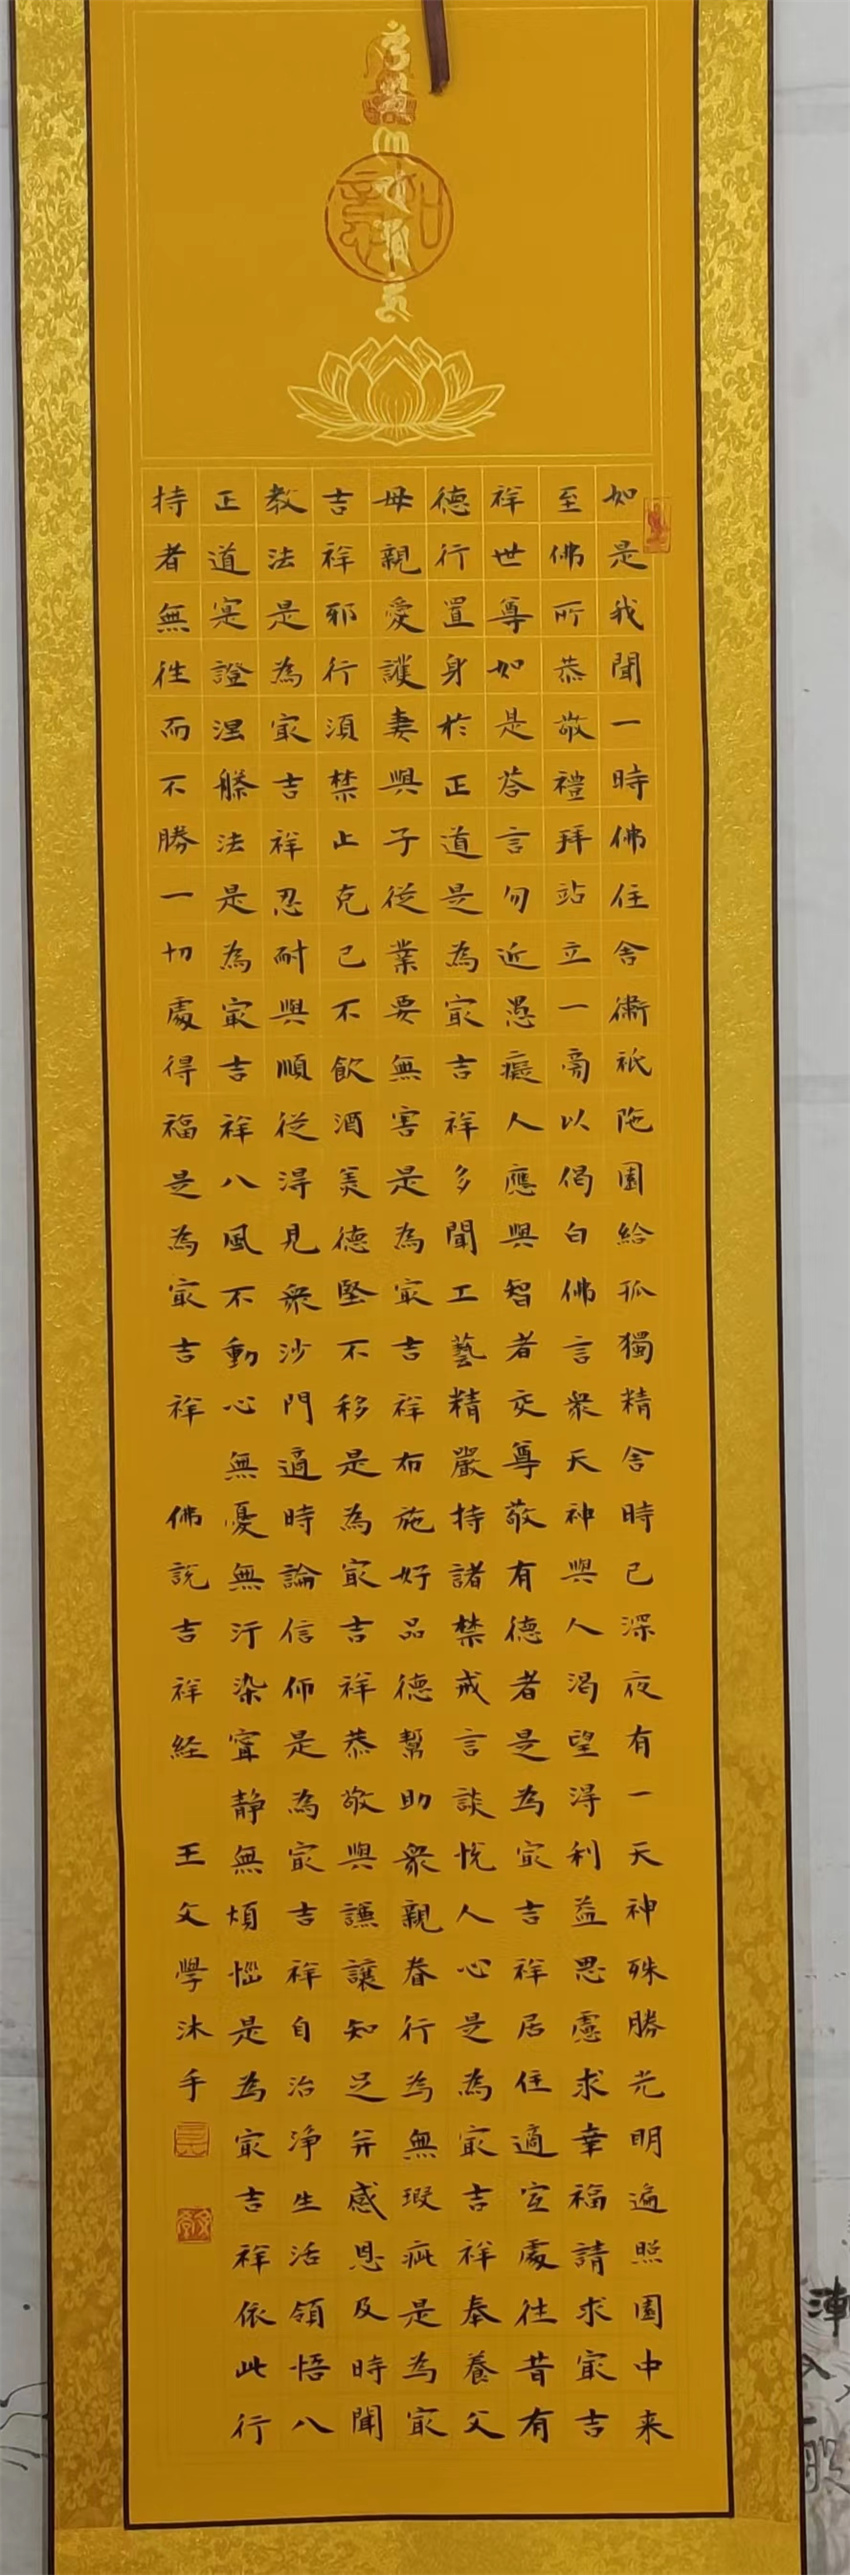 如是我聞一時佛住舍衛祇陁園給孤獨精舍時已深夜有一天神殊勝光明遍照園中来
至佛所恭敬禮拜站立一旁以偈白佛言衆天神與人渴望得利益思慮求幸福請求冣吉
祥世尊如是荅言勿近愚癡人應與智者交尊敬有德者是為冣吉祥居住適宜處往昔有
德行置身於正道是為冣吉祥多聞工藝精嚴持諸禁戒言談悅人心是為冣吉祥奉養父
母親愛護妻與子從業要無害是為冣吉祥布施好品德幫助衆親眷行為無瑕疵是為冣
吉祥邪行須禁止克己不飲酒美德堅不移是為冣吉祥恭敬與謙讓知足并感恩及時聞
教法是為冣吉祥忍耐與順從得見衆沙門適時論信仰是為冣吉祥自治淨生活領悟八
正道寔證涅槃法是為冣吉祥八風不動心無憂無汙染寧静無煩惱是為冣吉祥依此行
持者無往而不勝一切處得福是為冣吉祥 佛說吉祥経 王文學沐手